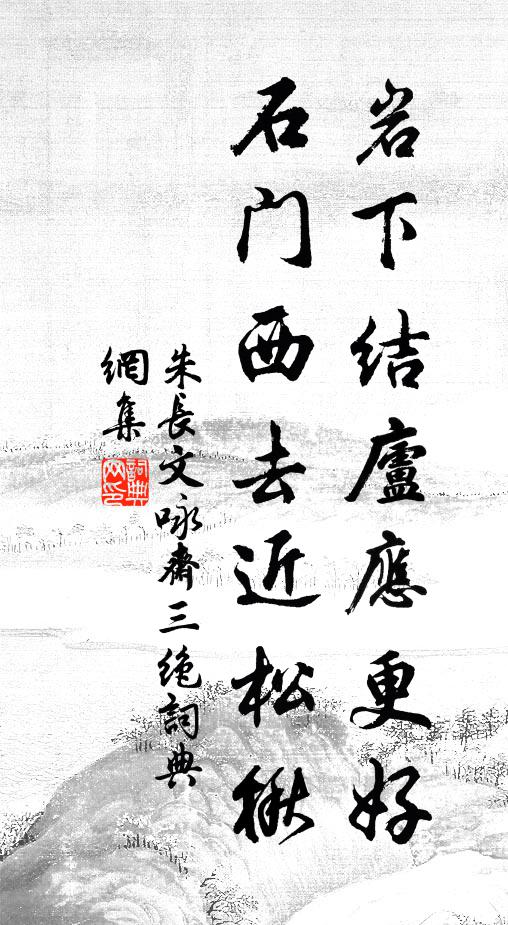 岩下结廬應更好
石门西去近松楸
朱長文咏齋三絶詞典
網集
詞典网印